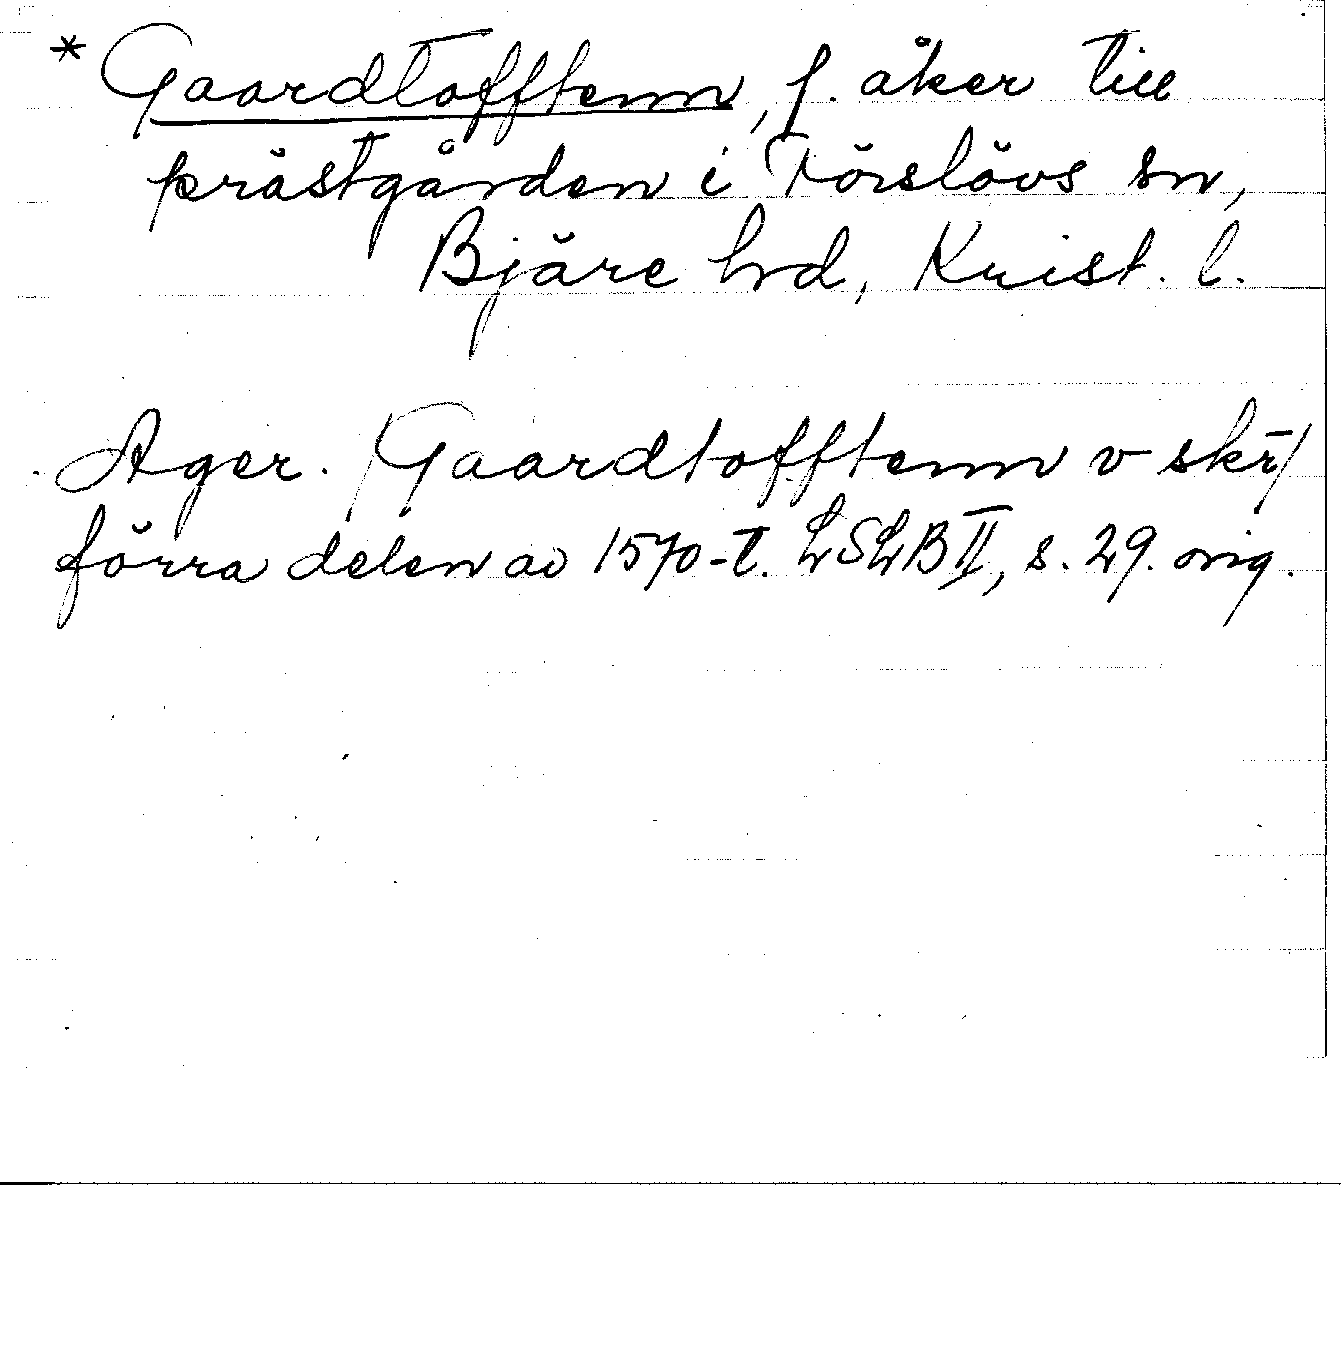 * Gaardtofftenn, f. åker till
prästgården i Förslövs sn,
Bjäre hrd, Krist. l.
Ager. /Gaardtofftenn v skr̄/
förra delen av 1570-t. LSLB II, s. 29. orig.